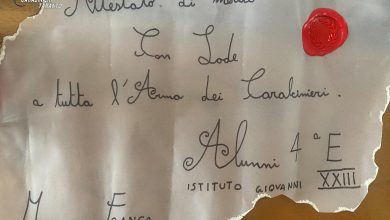 TARANTO
Attestato di merito
Con Lode
a tutta l'Arma dei Carabinieri.
Alunni 4ª E
ISTITUTO GIOVANNI XXIII